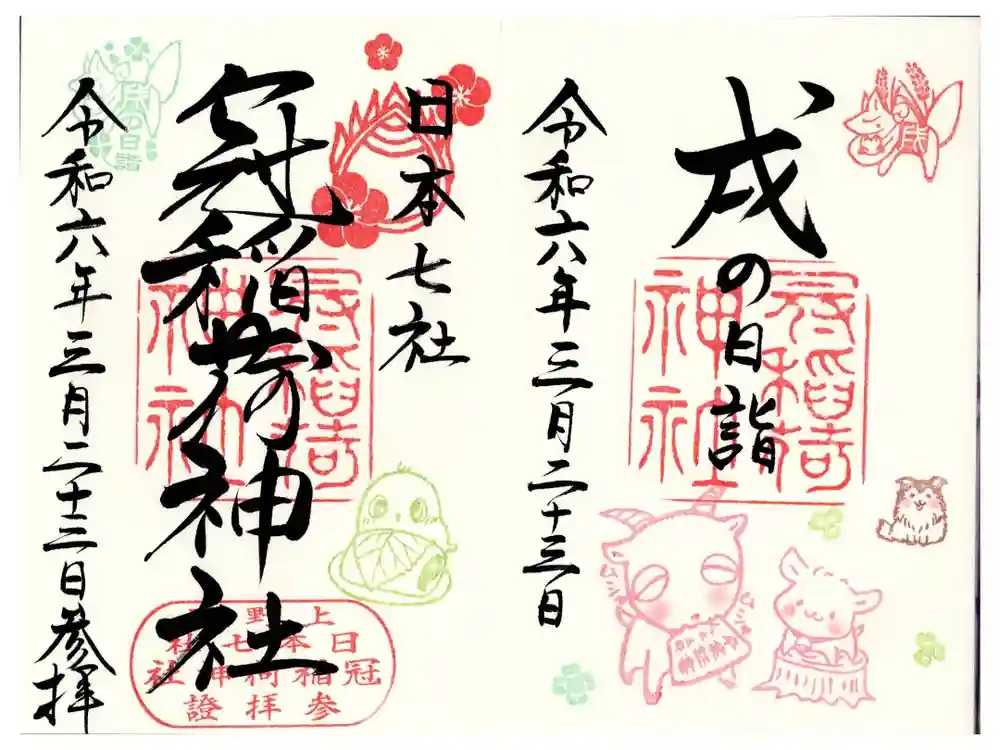 戌の日詣
令和六年三月二十三日
冠稲荷神社
戌
日本七社
冠稲荷神社
令和六年三月二十三日参拝
冠稲荷神社
戌の日詣
上野
日本七社
冠稲荷神社
参拝證